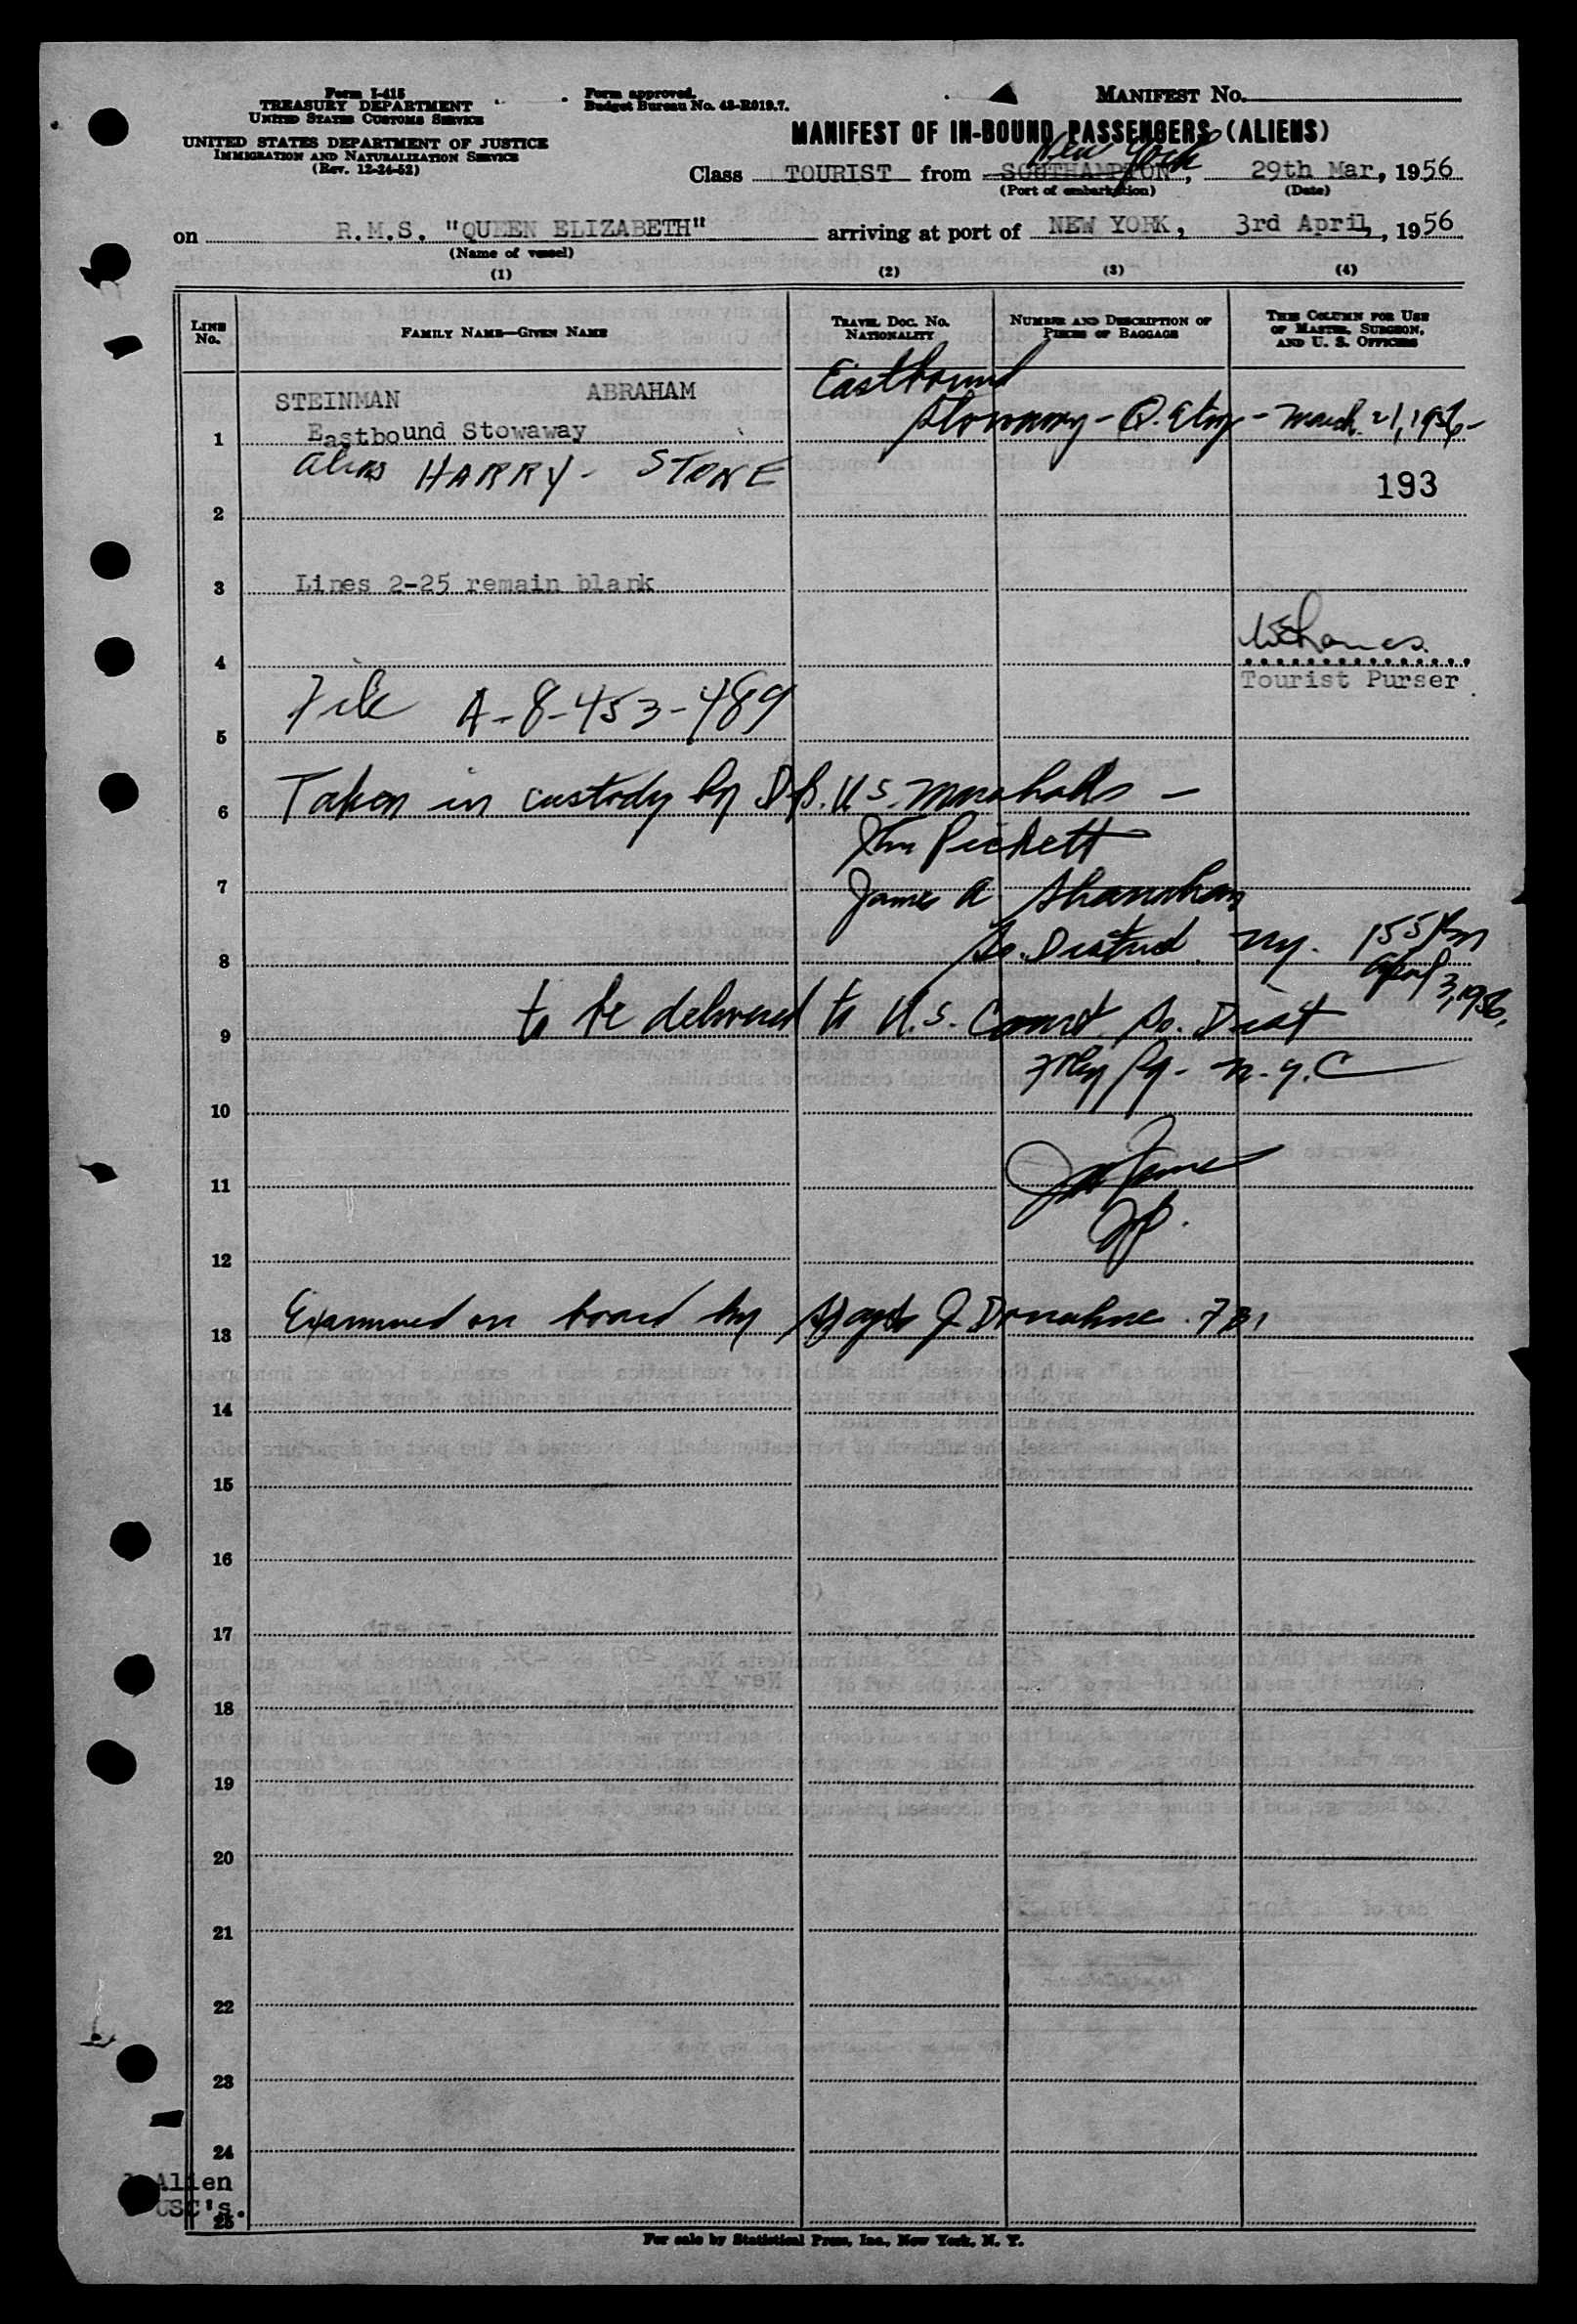 Form I-415
TREASURY DEPARTMENT
UNITED STATES CUSTOMS SERVICE
UNITED STATES DEPARTMENT OF JUSTICE
IMMIGRATION AND NATURALIZATION SERVICE
(Rev. 12-24-52)
Form approved.
Budget Bureau No. 43-R019.7.
MANIFEST NO.
MANIFEST OF IN-BOUND PASSENGERS (ALIENS)
New York
Class TOURIST from SOUTHAMPTON, 29th Mar, 1956
(Port of embarkation) (Date)
on R.M.S. "QUEEN ELIZABETH" arriving at port of NEW YORK, 3rd April, 1956
(Name of vessel)
(1) (2) (3) (4)
LINE No. FAMILY NAME—GIVEN NAME TRAVEL DOC. NO. NATIONALITY NUMBER AND DESCRIPTION OF PIECES OF BAGGAGE THIS COLUMN FOR USE OF MASTER, SURGEON, AND U. S. OFFICERS
STEINMAN ABRAHAM Eastbound
1 Eastbound Stowaway Stowaway - Q. Eliz - March 21, 1956 -
alias HARRY - STONE
193
2
3 Lines 2-25 remain blank
4
Tourist Purser
File A-8-453-489
5
6 Taken in custody by Dp. U.S. Marshalls -
Jhn Pickett
7 James A Shanahan
8 So. District NY. 155 Pm
April 3, 1956,
9 to be delivered to U.S. Court So. Dist
Foley Sq - N.Y.C
10
11
12
13 Examined on board by J. Donahue FBI
14
15
16
17
18
19
20
21
22
23
24
Alien
USC's.
25
For sale by Statistical Press, Inc., New York, N. Y.